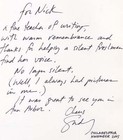 for Nick
a fine teacher of writing
with warm remembrance and
thanks for helping a silent freshman
find her voice.
No longer silent.
(Well, I always had pictures
in me.)
It was great to see you in
Ann Arbor.
Cheers
PHILADELPHIA
NOVEMBER 2005